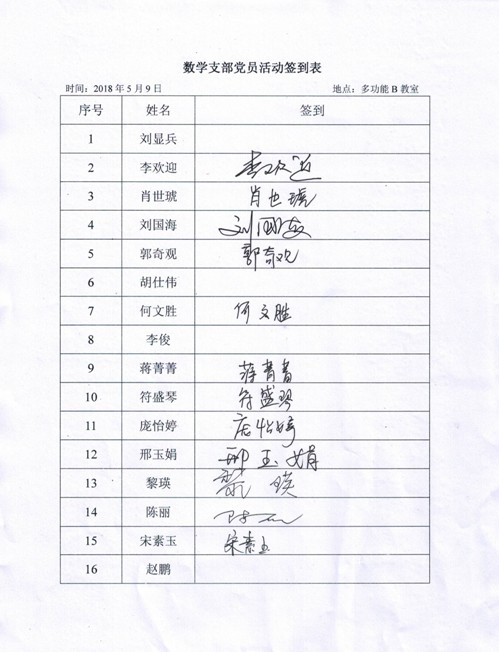 数学支部党员活动签到表
时间：2018 年 5 月 9 日 地点：多功能 B 教室
序号 姓名 签到
1 刘显兵
2 李欢迎 李欢迎
3 肖世琥 肖世琥
4 刘国海 刘国海
5 郭奇观 郭奇观
6 胡仕伟
7 何文胜 何文胜
8 李俊
9 蒋菁菁 蒋菁菁
10 符盛琴 符盛琴
11 庞怡婷 庞怡婷
12 邢玉娟 邢玉娟
13 黎瑛 黎瑛
14 陈丽 陈丽
15 宋素玉 宋素玉
16 赵鹏